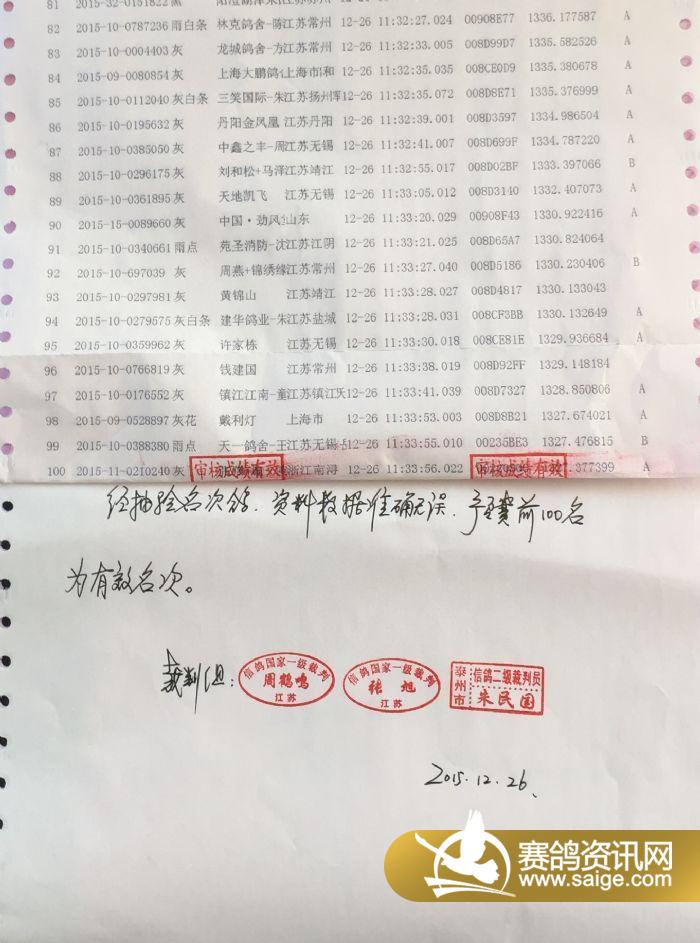 81 2015-32-0151822 黑
82 2015-10-0787236 雨白条 林克鸽舍-陈江苏常州 12-26 11:32:27.024 00908E77 1336.177587 A
83 2015-10-0004403 灰 龙城鸽舍-方江苏常州 12-26 11:32:33.005 008D99D7 1335.582526 A
84 2015-09-0080854 灰 上海大鹏鸽 上海市|和 12-26 11:32:35.035 008CE0D9 1335.380678 A
85 2015-10-0112040 灰白条 三笑国际-朱江苏扬州 12-26 11:32:35.072 008D8E71 1335.376999 A
86 2015-10-0195632 灰 丹阳金凤凰 江苏丹阳 12-26 11:32:39.001 008D3597 1334.986504 A
87 2015-10-0385050 灰 中鑫之丰-周江苏无锡 12-26 11:32:41.007 008D699F 1334.787220 A
88 2015-10-0296175 灰 刘和松+马泽江苏靖江 12-26 11:32:55.017 008D02BF 1333.397066 B
89 2015-10-0361895 灰 天地凯飞 江苏无锡 12-26 11:33:05.012 008D3140 1332.407073 A
90 2015-15-0089660 灰 中国·劲风山东 12-26 11:33:20.029 00908F43 1330.922416 A
91 2015-10-0340661 雨点 苑圣消防-沈江苏江阴 12-26 11:33:21.025 008D65A7 1330.824064
92 2015-10-697039 灰 周燕+锦绣缘江苏常州 12-26 11:33:27.040 008D5186 1330.230406 B
93 2015-10-0297981 灰 黄锦山 江苏靖江 12-26 11:33:28.027 008D4817 1330.133043
94 2015-10-0279575 灰白条 建华鸽业-朱江苏盐城 12-26 11:33:28.031 008CF3BB 1330.132649 A
95 2015-10-0359962 灰 许家栋 江苏无锡 12-26 11:33:30.018 008CE81E 1329.936684 A
96 2015-10-0766819 灰 钱建国 江苏常州 12-26 11:33:38.019 008D92FF 1329.148184
97 2015-10-0176552 灰 镇江江南-童江苏镇江 12-26 11:33:41.039 008D7327 1328.850806 A
98 2015-09-0528897 灰花 戴利灯 上海市 12-26 11:33:53.003 008D8B21 1327.674021 A
99 2015-10-0388380 雨点 天一鸽舍-王江苏无锡 12-26 11:33:55.010 00235BE3 1327.476815 B
100 2015-11-0210240 灰 审核成绩有效 浙江南浔 12-26 11:33:56.022 审核成绩有效 1327.377399 A
经抽验名次鸽、资料数据准确无误、予赛前100名
为有效名次。
裁判组：
信鸽国家一级裁判 周鹤鸣 江苏
信鸽国家一级裁判 张旭 江苏
泰州市 信鸽二级裁判员 朱民国
2015.12.26、
赛鸽资讯网
www.saige.com